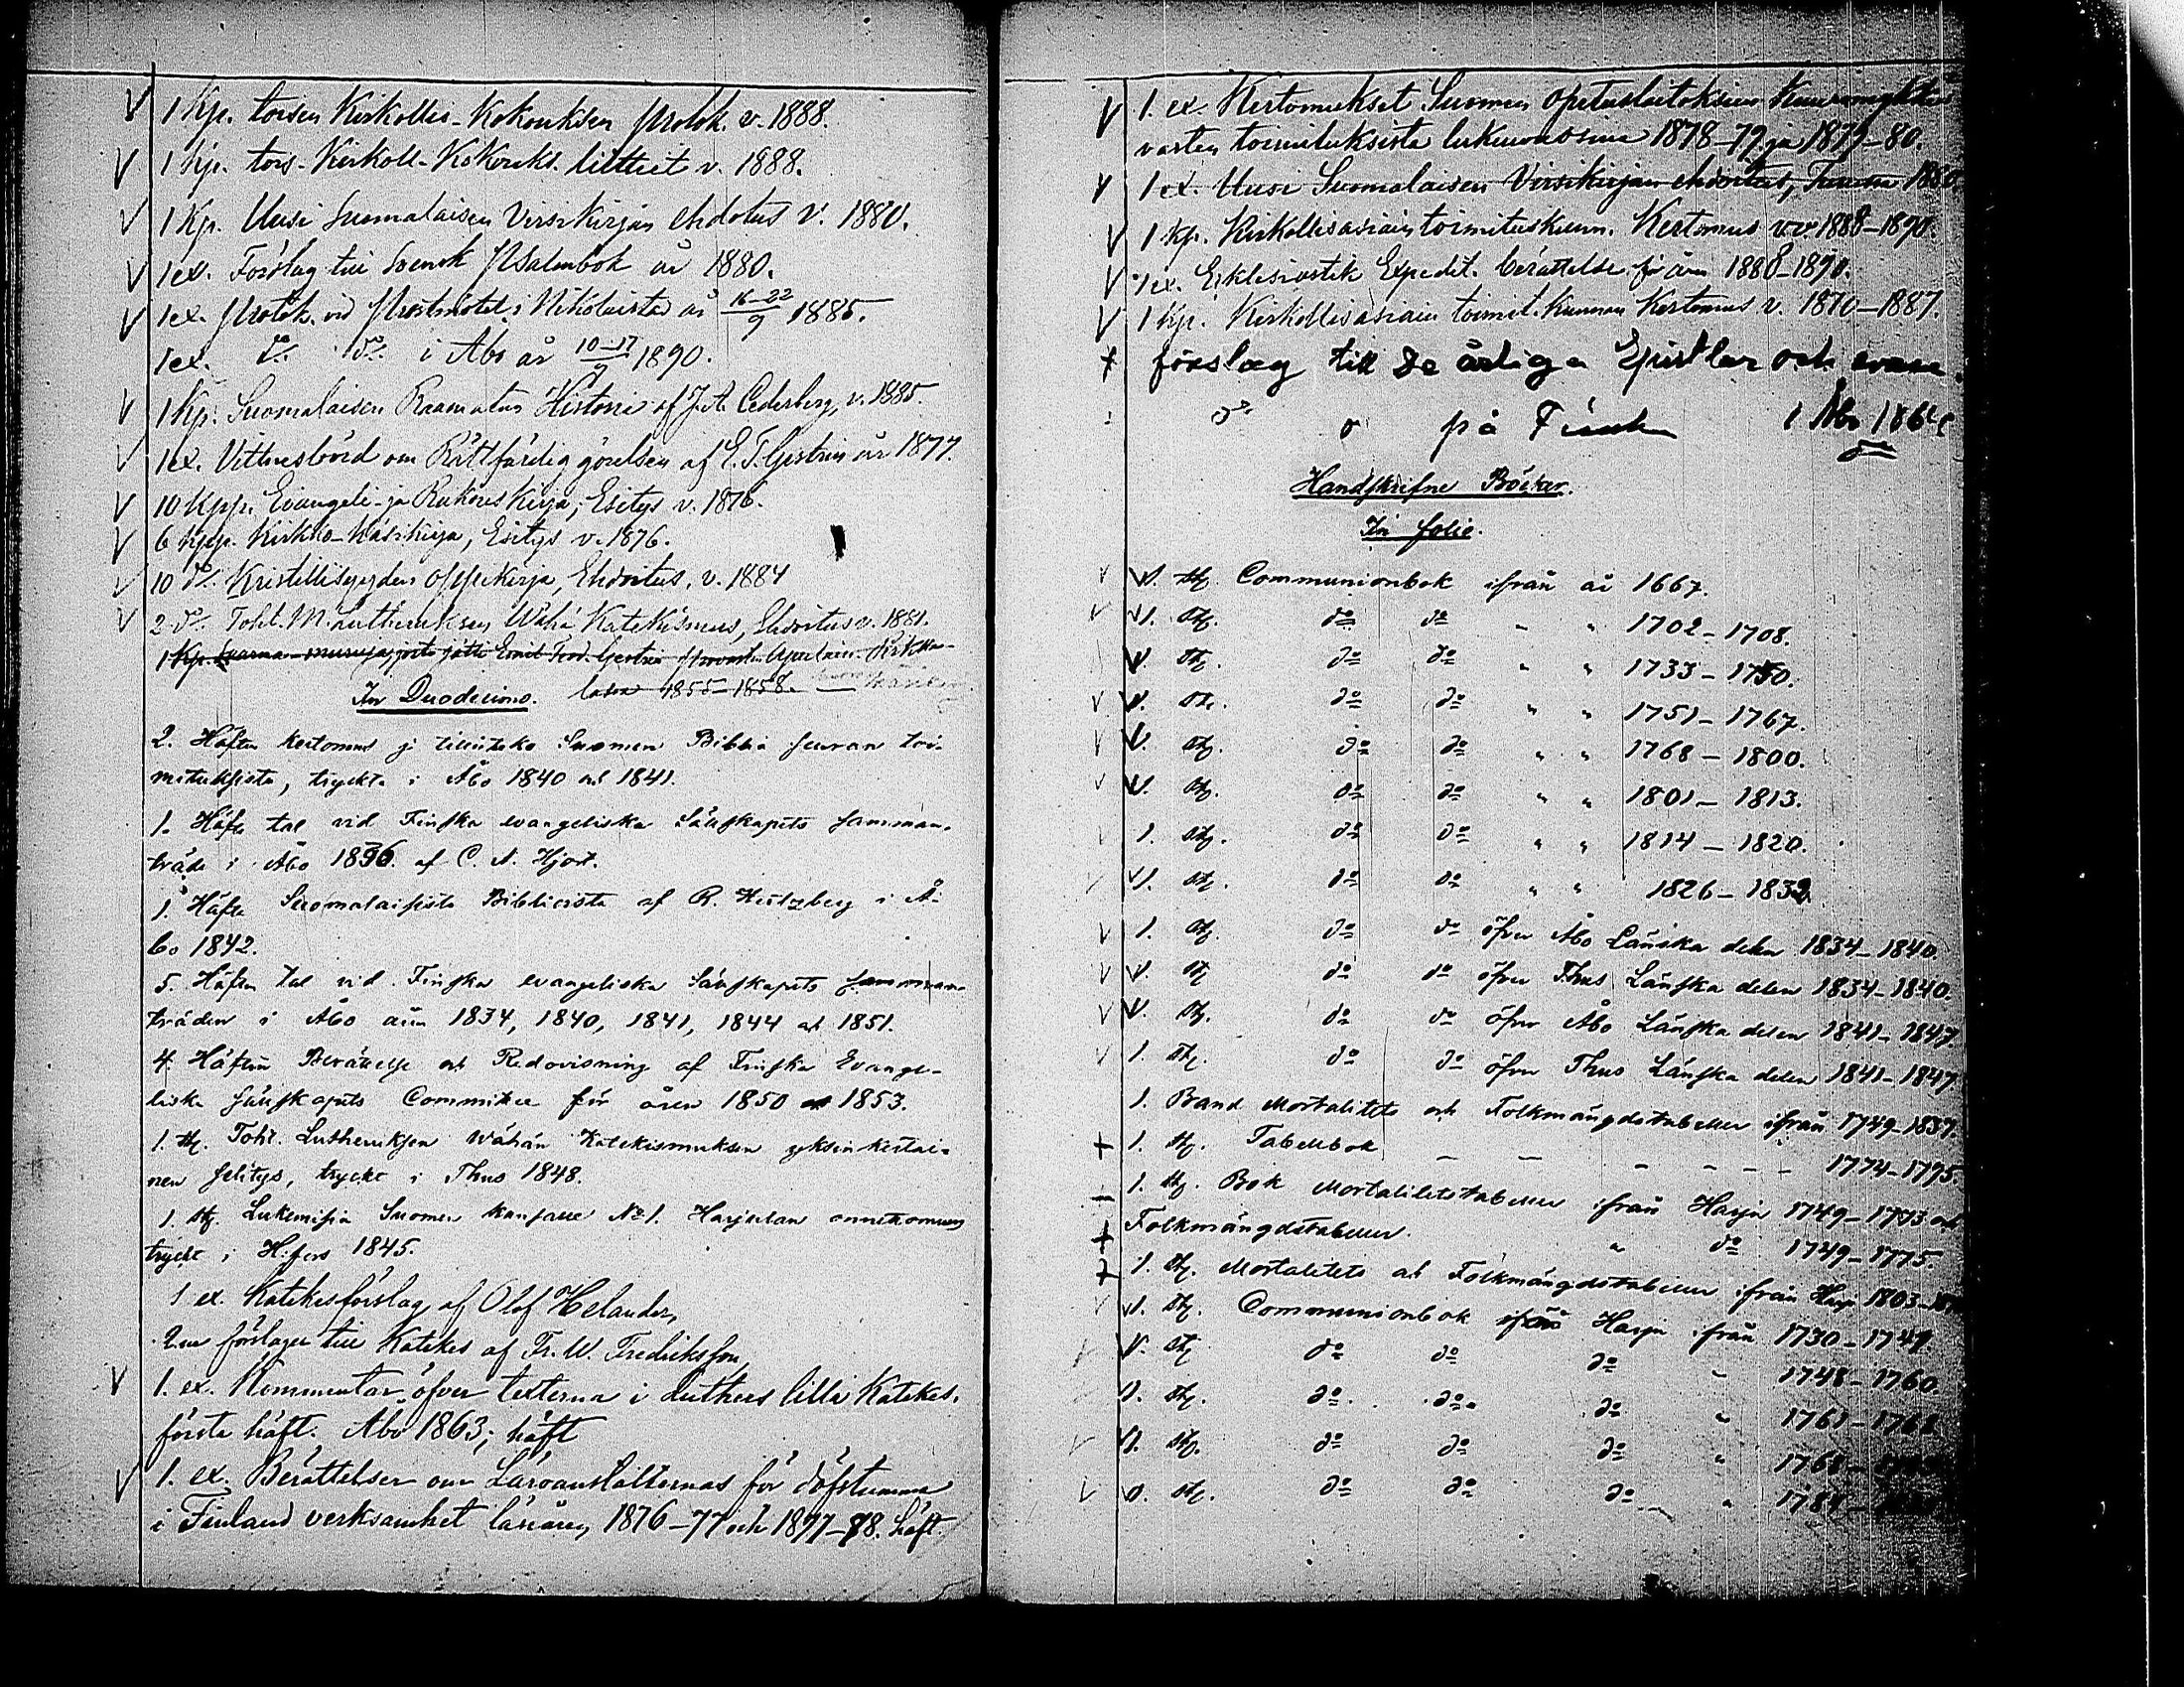 1 Kp. toisen Kirkollis-Kokouksen protok. v. 1888.
1 Kp. tois. Kirkoll-Kokouks. liitteet v. 1888.
1 Kp. Uusi Suomalaisen Virsikirjan ehdotus v. 1880.
1 ex. Förslag till Svensk Psalmbok år 1880.
1 ex. protok. vid Prestmötet i Nikolaistad år 16-22/9 1885.
1 ex. do do i Åbo år 10-17/9 1890.
1 Kp. Suomalaisen Raamatun Historia af J.A. Cederberg, v. 1885.
1 ex. Vittnesbörd om Rättfärdiggörelsen af E. T. Gestrin år 1877.
10 Kpp. Evangeli- ja Rukouskirja, Esitys v. 1876.
6 Kpp. Kirkko-Käsikirja, Esitys v. 1876.
10 do Kristillisyyden Oppikirja, Ehdoitus, v. 1884
2 do Toht. M. Lutheruksen Wähä Katekismus, Ehdoitus v. 1881.
1 Kp. jotta Emil Teod. Gestrin
In Duodecimo. 1855-1858.
2. Häften kertomus ja tilinteko Suomen Biblia seuran toi-
mituksista, tryckta i Åbo 1840 och 1841.
1. Häfte tal vid Finska evangeliska Sällskapets samman-
träde i Åbo 1836. af C. A. Hjort.
1. Häfte Suomalaisista Biblioista af R. Hertzberg i Å-
bo 1842.
5. Häften tal vid Finska evangeliska Sällskapets samman-
träden i Åbo åren 1834, 1840, 1841, 1844 och 1851.
4. Häften Berättelse och Redovisning af Finska Evange-
liska Sällskapets Committee för åren 1850 och 1853.
1. St. Toht. Lutheruksen Wähän Katekismuksen yksinkertai-
nen selitys, tryckt i Thus 1848.
1. St. Lukemisia Suomen kansalle No 1. Harjulan onnettomuus
tryckt i H:fors 1845.
1 ex. Katekesförslag af Olof Helander,
förslaget till Katekes af Fr. W. Fredriksson,
1. ex. Kommentar öfver texterna i Luthers lilla Katekes.
första häft. Åbo 1863; häft
1. ex. Berättelser om Läroanstalternas för döfstumma
i Finland verksamhet läsåren 1876-77 och 1877-78. häft.
1. ex. Kertomukset Suomen Opetuslaitoksien Kuuromykkiä
varten toimituksista lukuvuosina 1878-79 ja 1879-80.
1 ex. Uusi Suomalaisen Virsikirjan ehdoitus, 1880
1 Kp. Kirkollisasiain toimituskunn. Kertomus vv. 1888-1890.
1 ex. Eklesiastik Expedit. berättelse för åren 1888-1890.
1 Kp. Kirkollisasiain toimit. Kunnan Kertomus v. 1870-1887.
förslag till De årliga Epistlar och evan.
do o på Finsk i Åbo 1864
Handskrifne Böcker.
In folio.
1. St. Communionbok ifrån år 1667.
1. St. do do " " 1702-1708.
1. St. do do " " 1733-1750.
1. St. do do " " 1751-1767.
1. St. do do " " 1768-1800.
1. St. do do " " 1801-1813.
1. St. do do " " 1814-1820.
1. St. do do " " 1826-1832
1. St. do do öfver Åbo Länska delen 1834-1840.
1. St. do do öfver Thus Länska delen 1834-1840.
1. St. do do öfver Åbo Länska delen 1841-1847
1. St. do do öfver Thus Länska delen 1841-1847
1. Band Mortalitets och Folkmängdstabeller ifrån 1749-1837.
1. St. Tabellbok - - - - - - 1774-1775.
1. St. Bok Mortalitetstabeller ifrån Harju 1749-1773 och
Folkmängdstabeller. " do 1749-1775.
1. St. Mortalitets och Folkmängdstabeller ifrån Harju 1803-
1. St. Communionbok Harju ifrån 1730-1747.
1. St. do do do " 1748-1760.
1. St. do do do " 1761-
1. St. do do do "
1. St. do do do " 1784-